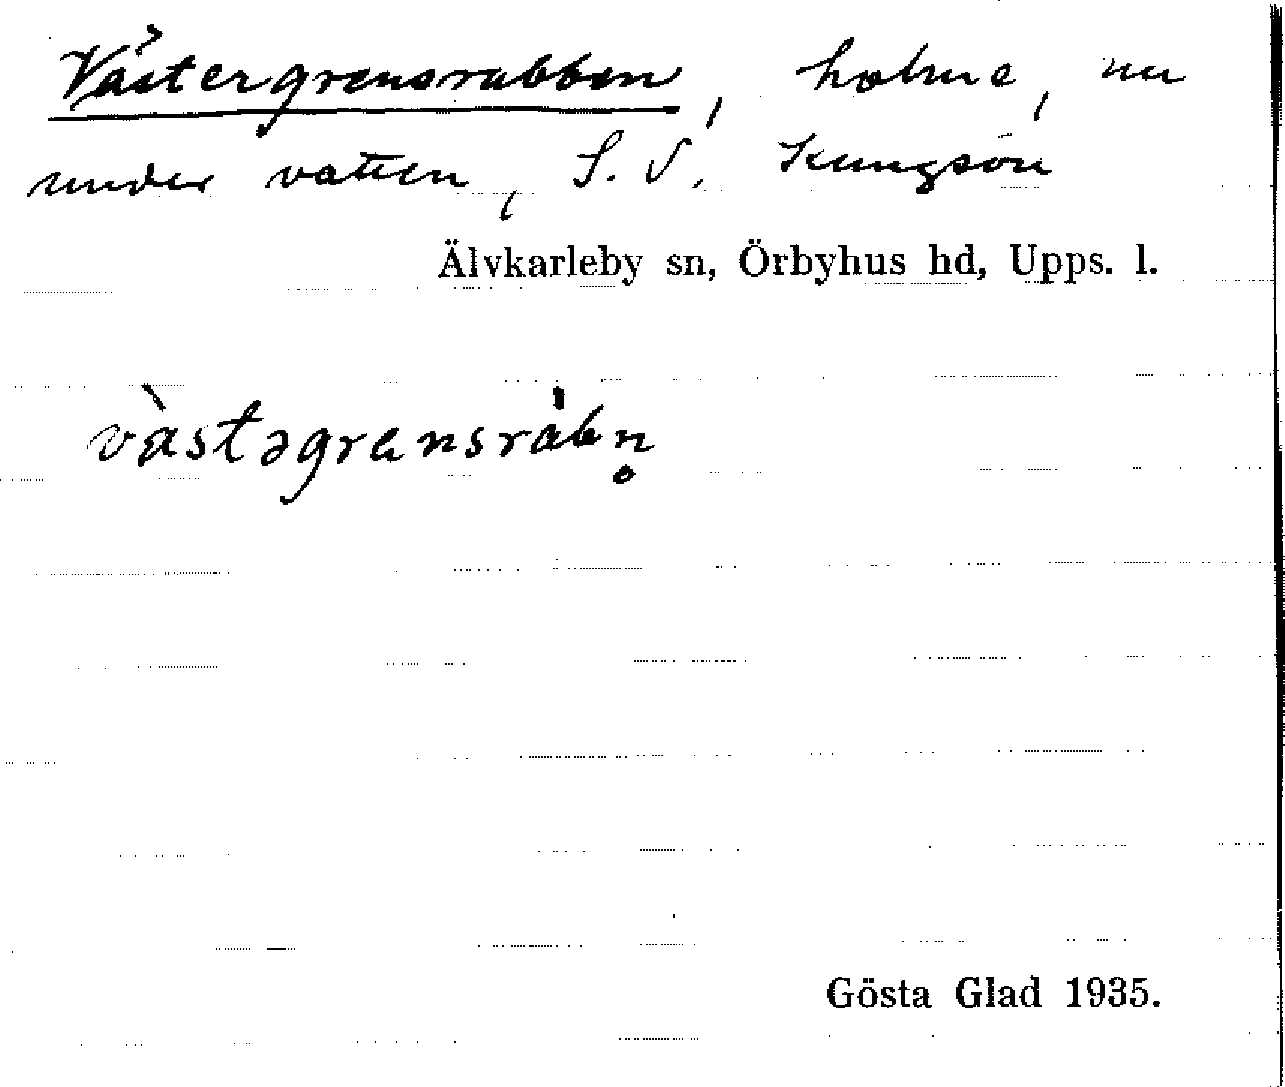 Västergrensrabben, holme, nu
under vatten, S. V. Kungsön
Älvkarleby sn, Örbyhus hd, Upps. l.
västəgrensràbn̥
Gösta Glad 1935.